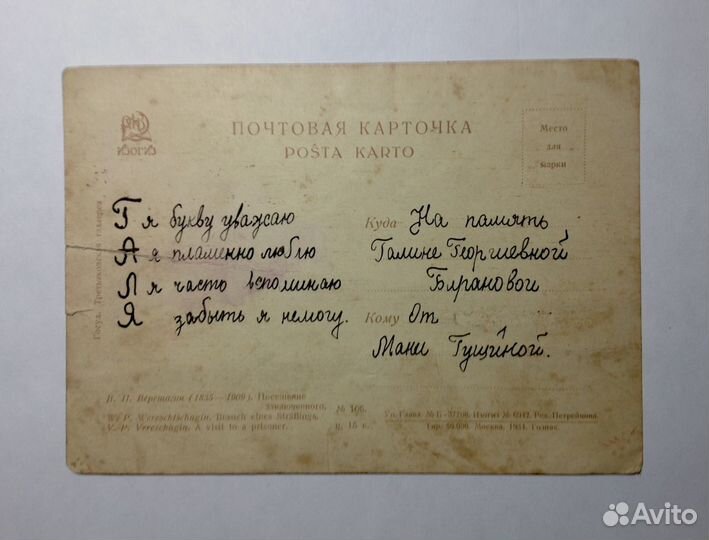 ПОЧТОВАЯ КАРТОЧКА
POŜTA KARTO
Место
для
марки
ИЗОГИЗ
Госуд. Третьяковская галлерея
Г я букву уважаю
А я пламенно люблю
Л я часто вспоминаю
Я забыть я немогу.
Куда На память
Галине Георгиевной
Барановой
Кому От
Мани Гущиной.
В. П. Верещагин (1835—1909). Посещение
заключенного.
W. P. Wereschtschagin. Besuch eines Sträflings.
V. P. Vereschagin. A visit to a prisoner.
№ 106.
ц. 15 к.
Москва, 1931.
Avito